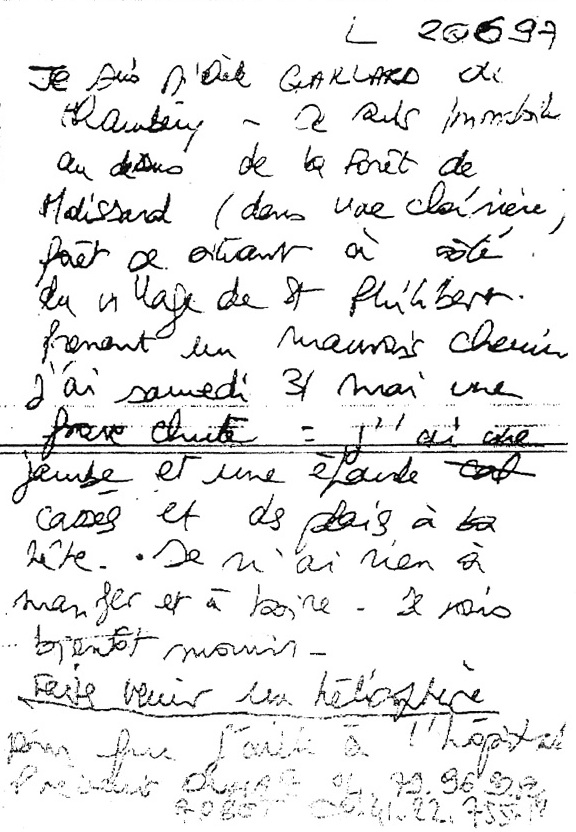 L 200697
Je suis Mélle GAILLARD de
Chambéry - Je suis immobile
au dessus de la forêt de
Malissard (dans une clairière,
forêt se situant à côté
du village de St Philibert.
prenant un mauvais chemin
j'ai samedi 31 mai une
grave chute = j'ai une
jambe et une épaule
cassés et ds plais à la
tête. Je n'ai rien à
manger et à boire - Je vais
bientôt mourir -
Faite venir un hélicoptère
pour que j'aille à l'hôpital
Prévenir 79.96